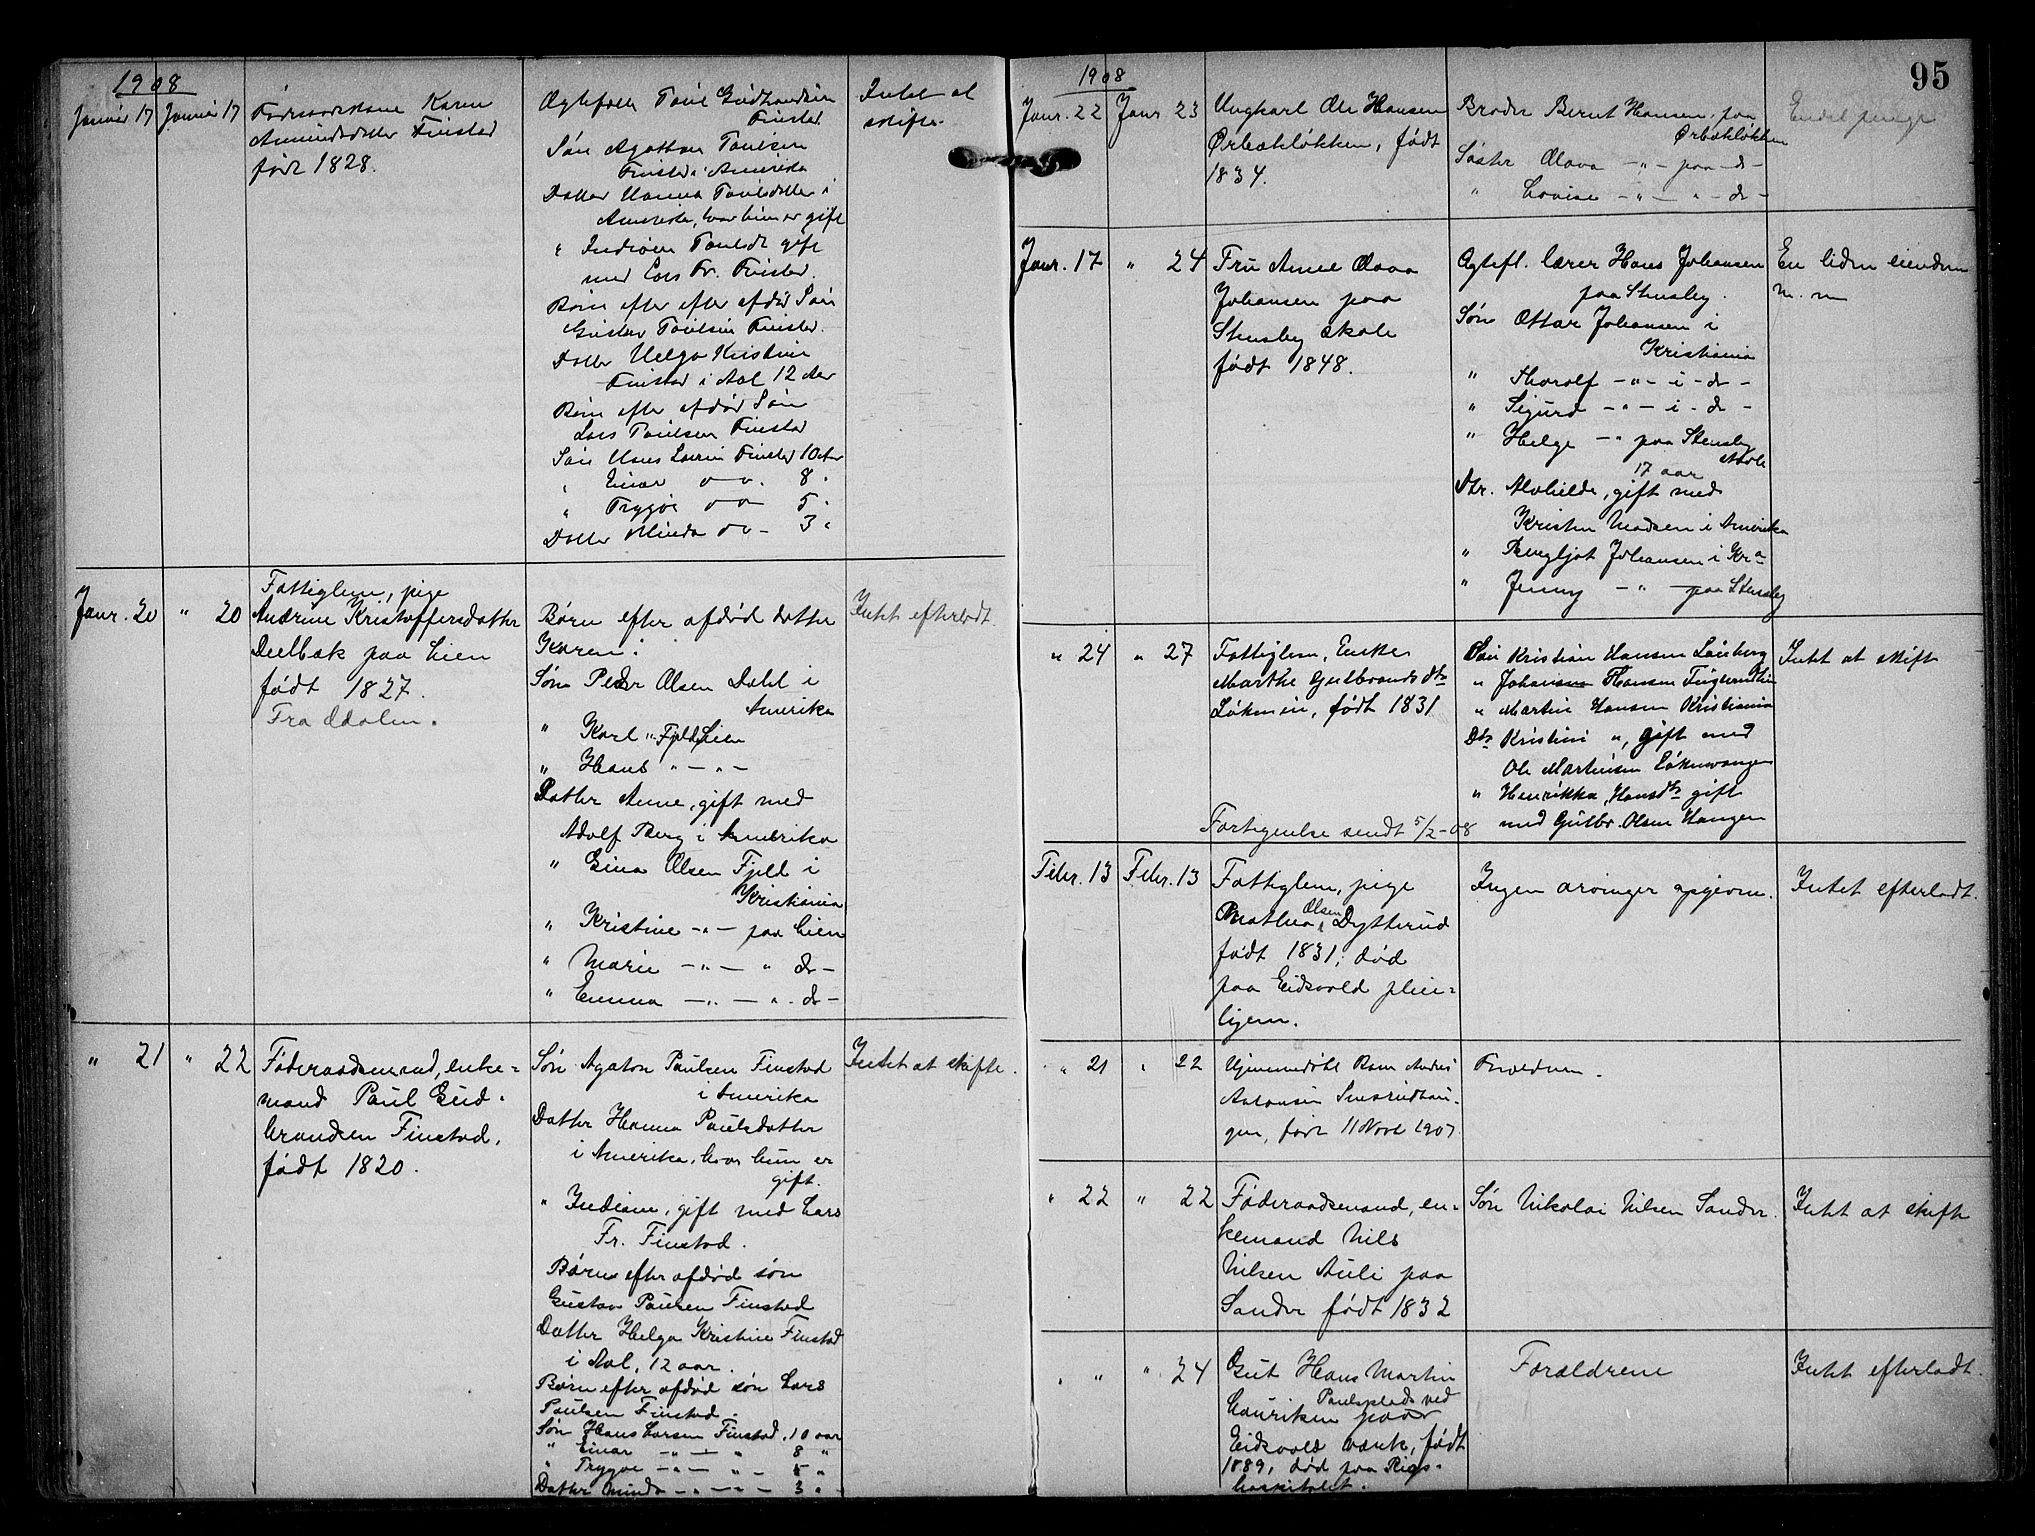 1908
Januar 17 Januar 17
Føderaadskone Karen
Amundsdatter Finstad
født 1828.
Ægtefolk Paul Gudbrandsen
Finstad
Søn Agathon Paulsen
Finstad i Amerika
Datter Hanna Paulsdatter i
Amerika, hvor hun er gift
" Indiane Paulsdt gift
med Lars Fr. Finstad.
Børn efter efter afdød Søn
Gustav Paulsen Finstad.
Datter Helga Kristine
Finstad i Aal 12 Aar
Børn efter afdød Søn
Lars Paulsen Finstad
Søn Hans Larsen Finstad 10 Aar
" Einar 8 "
" Trygve 5 "
Datter Minda 3 "
Intet at
skifte.
Janr. 20 " 20
Fattiglem, pige
Andrine Kristoffersdatter
Deelbæk paa Lien
født 1827.
Fra Odalen.
Børn efter afdød datter
Karen:
Søn Peder Olsen Dahl i
Amerika
" Karl " Fjeld Lien
" Hans " - " -
Datter Anne, gift med
Adolf Berg i Amerika
" Gina Olsen Fjeld i
Kristiania
" Kristine - " - paa Lien
" Marie - " - " do -
" Emma - " - " do -
Intet efterladt.
" 21 " 22
Føderaadsmand, enke=
mand Paul Gud-
brandsen Finstad,
født 1820.
Søn Agaton Paulsen Finstad
i Amerika
Datter Hanna Paulsdatter
i Amerika, hvor hun er
gift.
" Indiane, gift med Lars
Fr. Finstad.
Børn efter afdød søn
Gustav Paulsen Finstad
Datter Helga Kristine Finstad
i Aal, 12 aar.
Børn efter afdød søn Lars
Paulsen Finstad.
Søn Hans Larsen Finstad, 10 aar
" Einar - " - " 8 "
" Trygve - " - " - 5 "
Datter Minda - " - " - 3 "
Intet at skifte.
95
1908
Janr. 22 Janr. 23
Ungkarl Ole Hansen
Ørbækløkken, født
1834.
Broder Bernt Hansen, paa
Ørbækløkken
Søster Olava - " - paa - do -
" Lovise - " - " - do -
Endel penge
Janr. 17 " 24
Fru Anne Olava
Johansen paa
Stensby skole
født 1848.
Ægtefl. lærer Hans Johansen
paa Stensby.
Søn Ottar Johansen i
Kristiania
" Thorolf - " - i - do -
" Sigurd - " - i - do -
" Helge - " paa Stensby
skole
17 aar
Dtr. Alvhilde, gift med
Kristen Madsen i Amerika
" Bergljot Johansen i Kra
" Jenny - " - paa Stensby
En liden eiendom
m. m
" 24 " 27
Fattiglem, Enke
Marthe Gulbrandsdtr
Løkmein, født 1831
Fortegnelse sendt 5/2-08
Søn Kristian Hansen
" Johannes Hansen
" Martin Hansen Kristiania
Dtr Kristine ", gift med
Ole Martinsen Løkenvangen
" Henrikka, Hansdtr gift
med Gulbr. Olsen Hangen
Intet at skifte
Febr. 13 Febr. 13
Fattiglem, pige
Olsen
Mathea, Dytterud
født 1831; død
paa Eidsvold pleie=
hjem.
Ingen arvinger opgivne.
Intet efterladt.
" 21 " 22
Hjemmedøbt Barn Andreas
Aronsen
gen, født 11 Novb 1907.
Forældrene.
" 22 " 22
Føderaadsmand, en=
kemand Nils
Nilsen Auli paa
Sander født 1832
Søn Nikolai Nilsen Sander.
Intet at skifte
" " " 24
Gut Hans Martin
Paulsplads ved
Lauritsen paa
Eidsvold værk, født
1889, død paa Rigs-
hospitalet.
Forældrene
Intet efterladt.